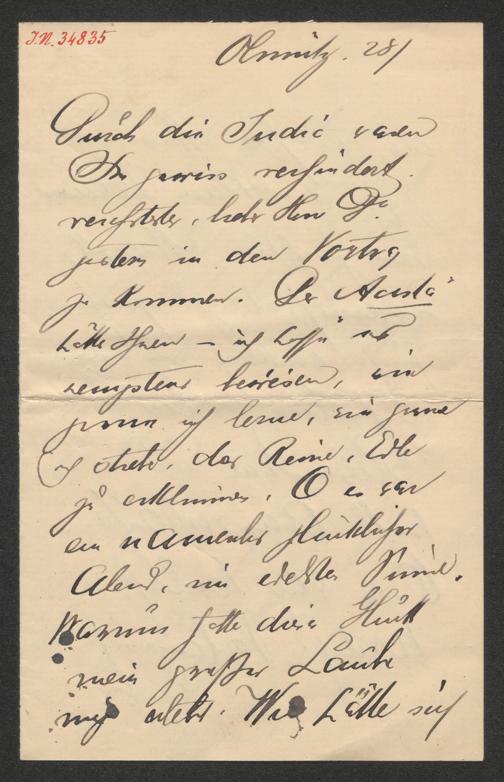 J.N. 34835
Olmütz. 28/
Durch die Indic waren
Sie gewiss verhindert
verehrter, lieber Herr Dr.
gestern in den Vortrag
zu kommen. Der Abend
hätte Ihnen – ich hoffe es
wenigstens bewiesen, wie
gerne ich lerne, wie gerne
ich strebe, das Reine, Edle
zu erklimmen. O es war
ein namenlos glücklicher
Abend, im edelsten Sinne.
Warum hatte dieses Glück
mein großer
nicht erlebt. Wie hätte sich